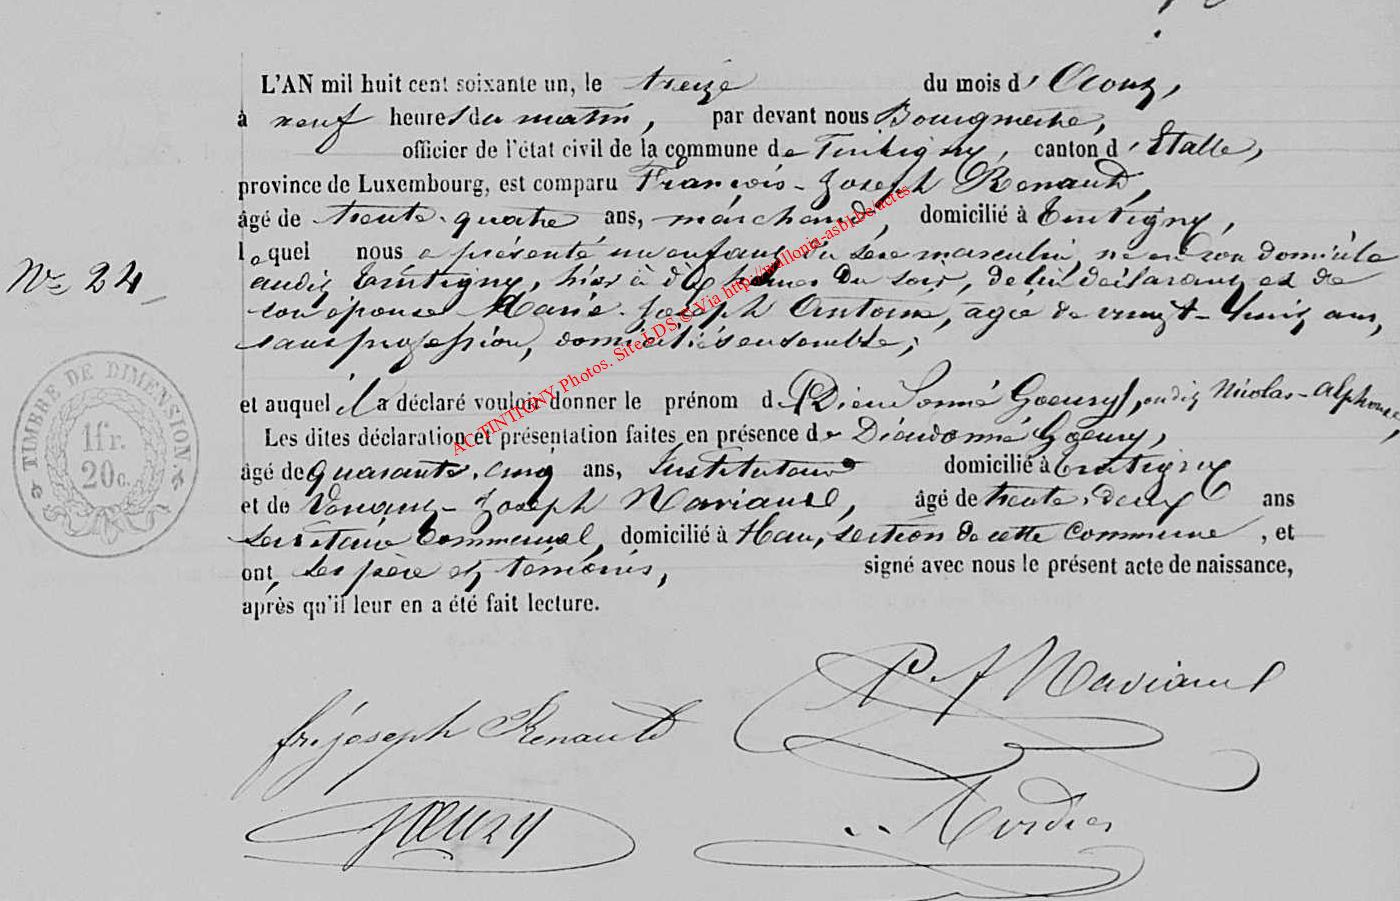 L'AN mil huit cent soixante un, le treize du mois d'Août,
à neuf heures du matin, par devant nous Bourgmestre,
officier de l'état civil de la commune de Tintigny, canton d'Etalle,
province de Luxembourg, est comparu François-Joseph Renauld,
âgé de trente-quatre ans, marchand, domicilié à Tintigny,
lequel nous a présenté un enfant du sexe masculin, né en son domicile
audit Tintigny, hier à dix heures du soir, de lui déclarant et de
son épouse Marie-Joseph Antoine, agée de vingt-huit ans,
sans profession, domiciliés ensemble;
N° 24
et auquel il a déclaré vouloir donner le prénom de Dieudonné Goeury, oudit Nicolas-Alphonse,
Les dites déclaration et présentation faites en présence de Dieudonné Goeury,
âgé de quarante-cinq ans, Instituteur domicilié à Tintigny
et de Joseph Naviaux, âgé de trente-deux ans
Secrétaire Communal, domicilié à Han, section de cette commune, et
ont, les père et témoins, signé avec nous le présent acte de naissance,
après qu'il leur en a été fait lecture.
TIMBRE DE DIMENSION
1fr.
20c.
AC TINTIGNY Photos. Site LDS © Via http://wallonia-asbl.be/actes
Naviaux
fr. joseph Renauld
Goeury